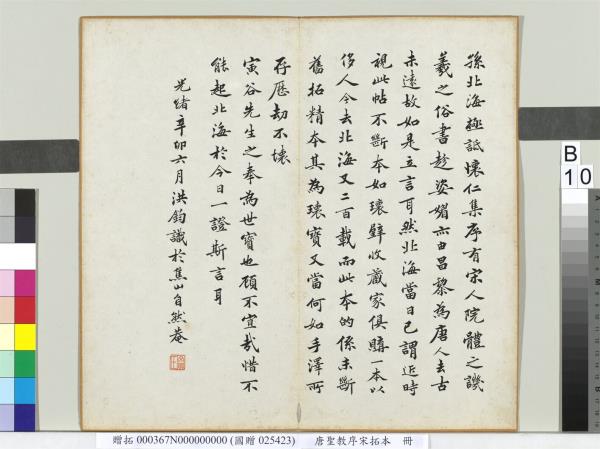 孫北海極詆懷仁集序有宋人院體之譏
羲之俗書趁姿媚亦由昌黎為唐人去古
未遠故如是立言耳然北海當日已謂近時
視此帖不斷本如瓌璧收藏家俱購一本以
侈人今去北海又二百載而此本的係未斷
舊拓精本其為瓌寶又當何如手澤所
存歷劫不壞
寅谷先生之奉為世寶也顧不宜哉惜不
能起北海於今日一證斯言耳
光緒辛卯六月洪鈞識於焦山自然菴
B
10
贈拓 000367N000000000 (國贈 025423) 唐聖教序宋拓本 冊